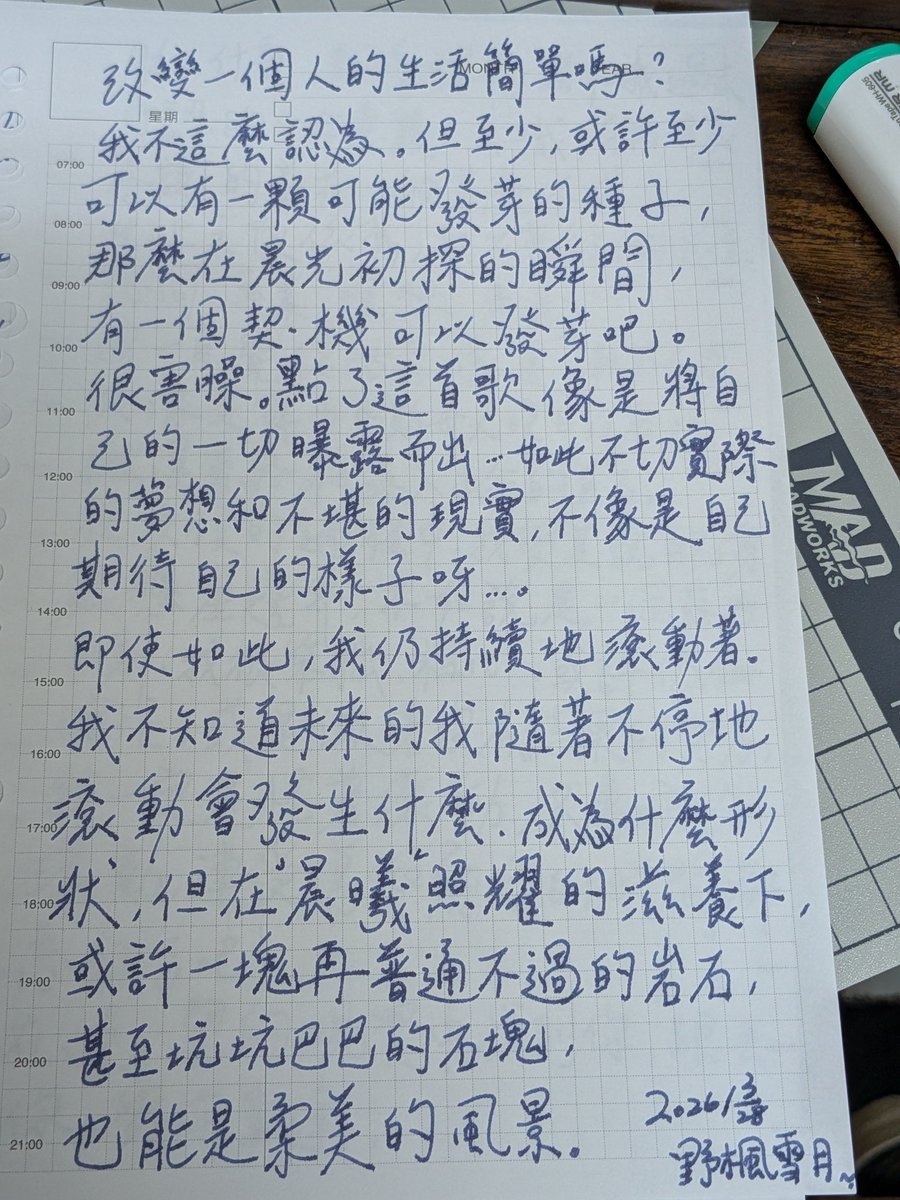 改變一個人的生活簡單嗎？
星期
我不這麼認為。但至少，或許至少
07:00
可以有一顆可能發芽的種子，
08:00
那麼在晨光初探的瞬間，
09:00
有一個契機可以發芽吧。
10:00
很害臊。點了這首歌像是將自
11:00
己的一切曝露而出…如此不切實際
12:00
的夢想和不堪的現實，不像是自己
13:00
期待自己的樣子呀…。
14:00
即使如此，我仍持續地滾動著。
15:00
我不知道未來的我隨著不停地
16:00
滾動會發生什麼．成為什麼形
17:00
狀，但在"晨曦"照耀的滋養下，
18:00
或許一塊再普通不過的岩石，
19:00
甚至坑坑巴巴的石塊，
20:00
也能是柔美的風景。
21:00
野楓雪月
MAD